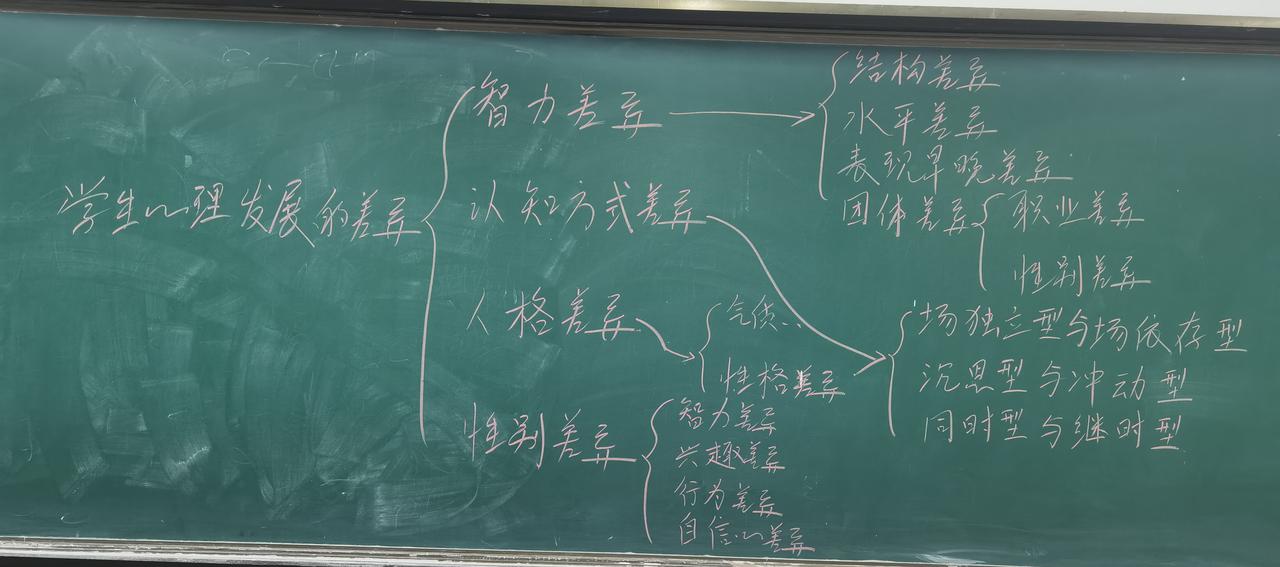 学生心理发展的差异
智力差异
结构差异
水平差异
表现早晚差异
团体差异
职业差异
性别差异
认知方式差异
场独立型与场依存型
沉思型与冲动型
同时型与继时型
人格差异
气质..
性格差异
性别差异
智力差异
兴趣差异
行为差异
自信心差异